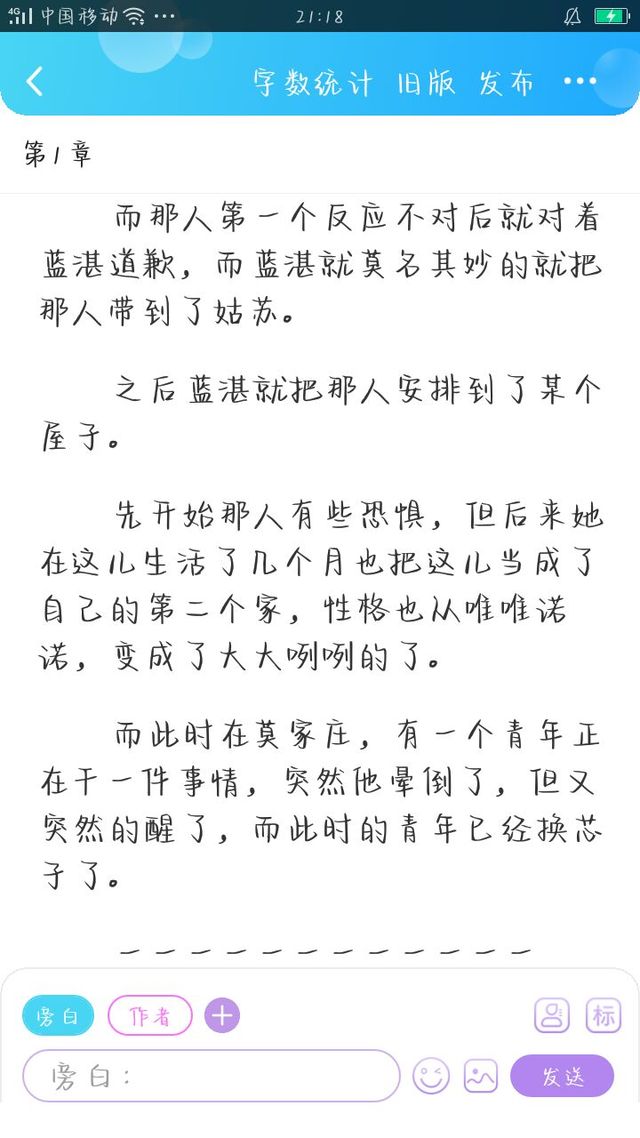 4G 中国移动 ··· 21:18
字数统计 旧版 发布 ···
第1章
而那人第一个反应不对后就对着
蓝湛道歉，而蓝湛就莫名其妙的就把
那人带到了姑苏。
之后蓝湛就把那人安排到了某个
屋子。
先开始那人有些恐惧，但后来她
在这儿生活了几个月也把这儿当成了
自己的第二个家，性格也从唯唯诺
诺，变成了大大咧咧的了。
而此时在莫家庄，有一个青年正
在干一件事情，突然他晕倒了，但又
突然的醒了，而此时的青年已经换芯
子了。
————————————
旁白 作者 + 标
旁白： 发送